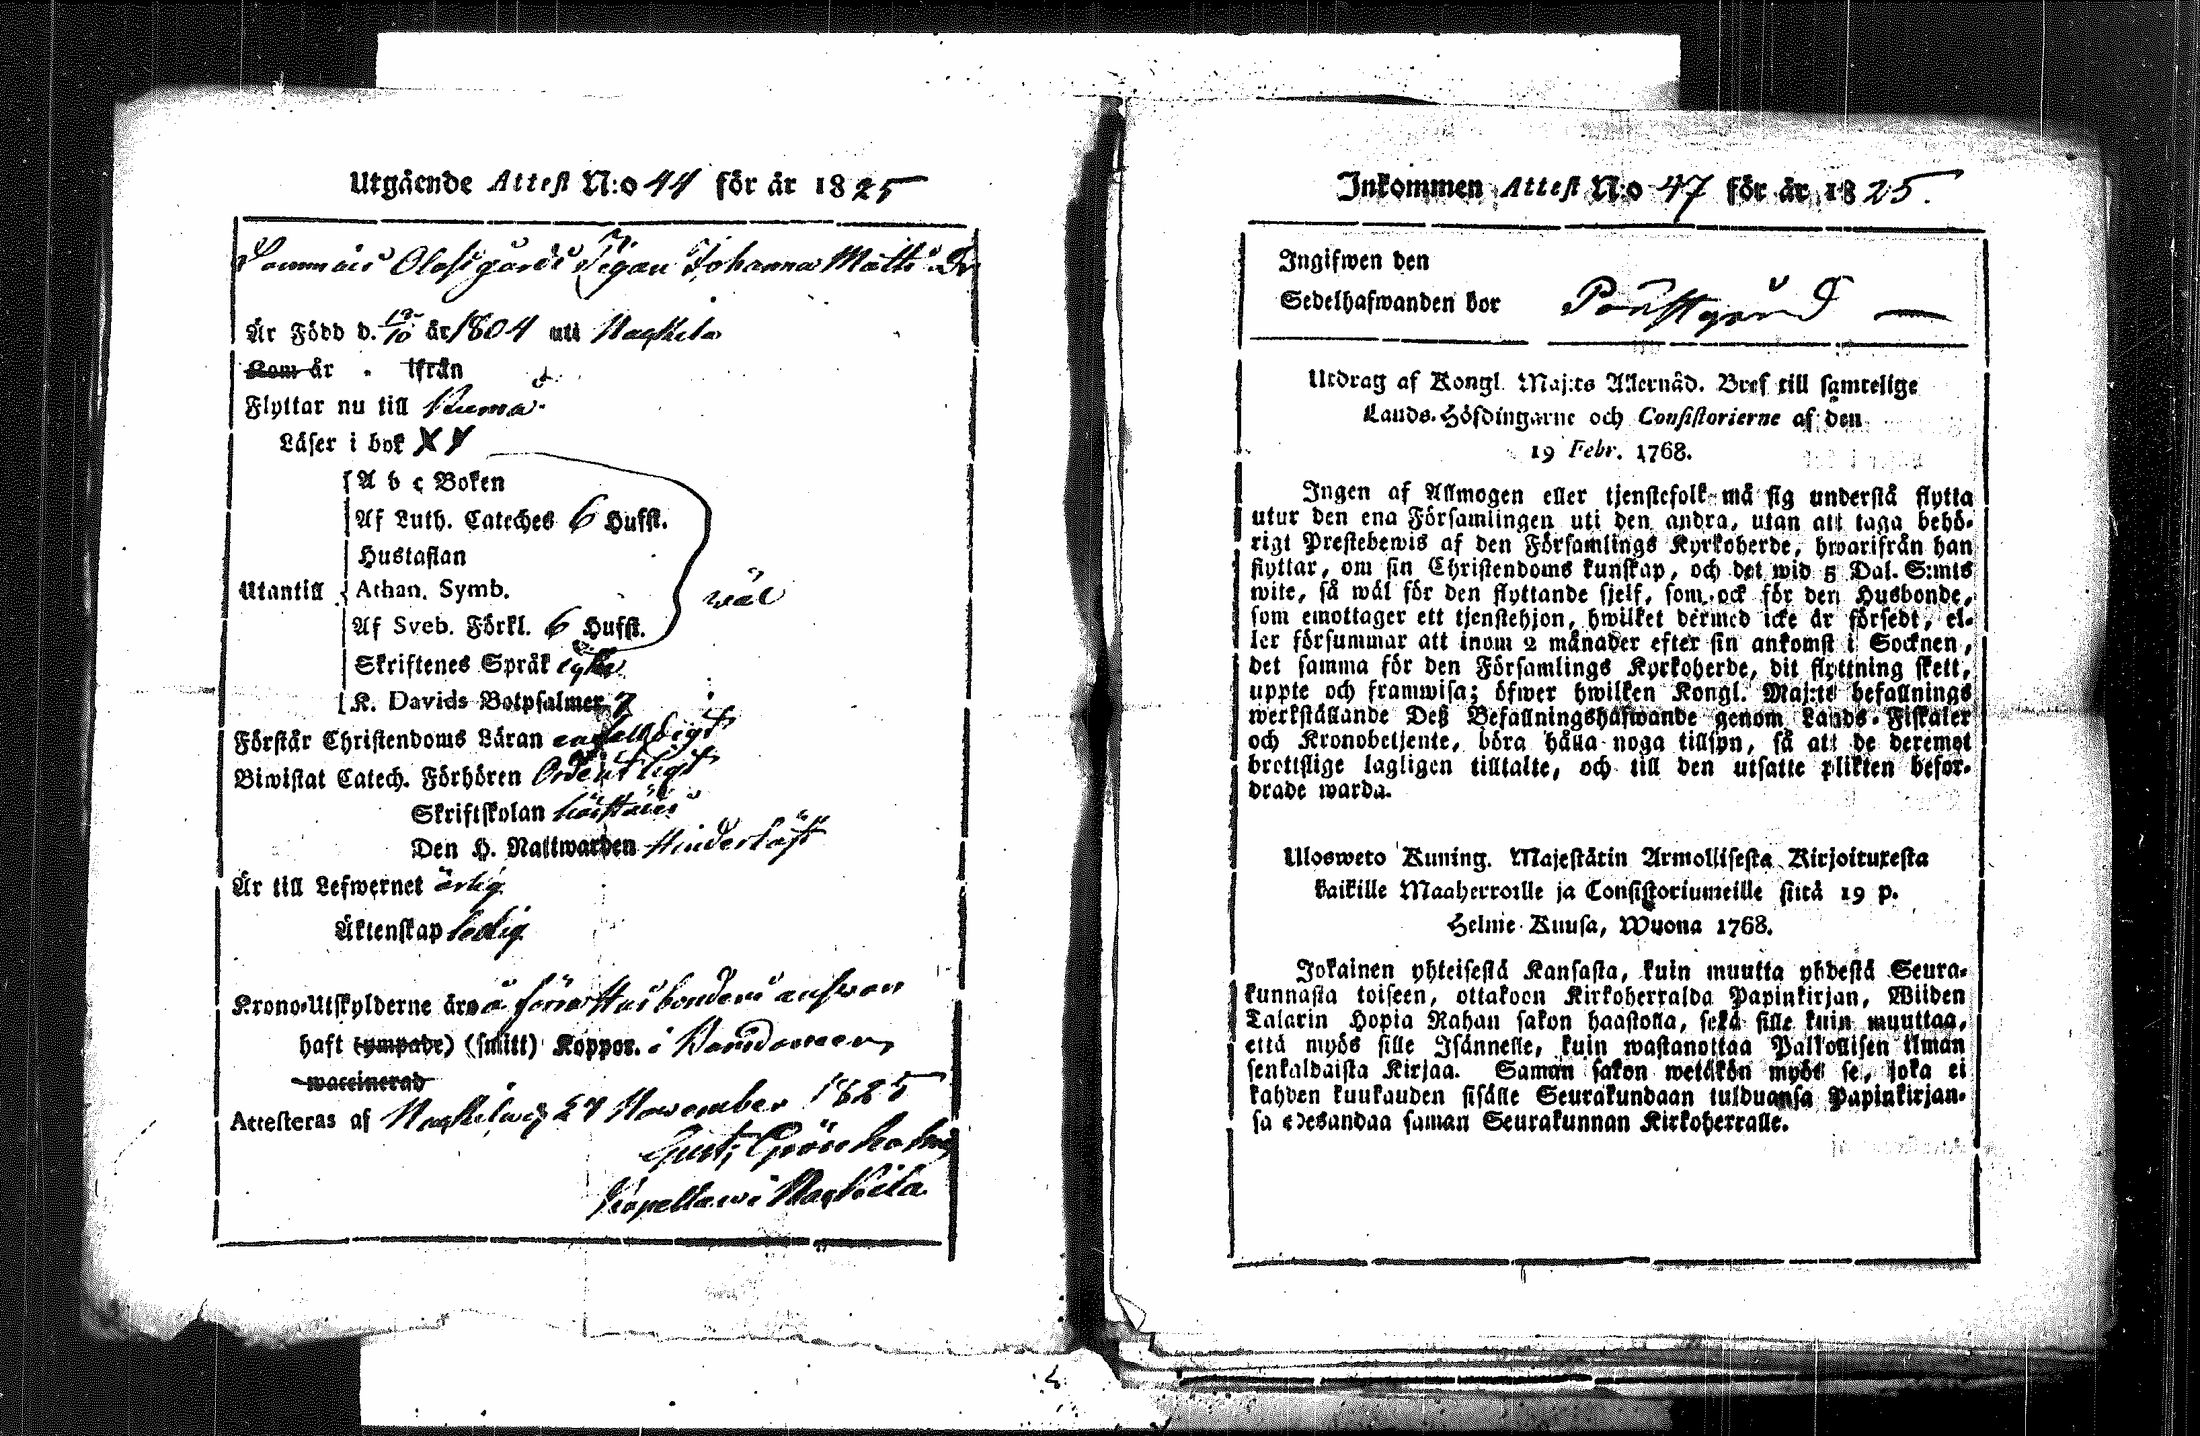 Utgående Attest N:o 44 för år 1825
Olofsgårds Pigan Johanna Matts Dr
Är Född d. 19/10 år 1804 uti
Kom år . ifrån
Flyttar nu till
Läser i bok X Y
A b c Boken
Af Luth. Cateches 6 Hufst.
Hustaflan
Utantill Athan. Symb.
wäl
Af Sveb. Förkl. 6 Hufst.
Skriftenes Språk
K. Davids Botpsalmer 7
Förstår Christendoms Läran enfelldigt
Biwistat Catech. Förhören Ordentligt
Skriftskolan
Den H. Nattwarden
Är till Lefwernet ärlig
Äktenskap ledig
Krono-Utskylderne äro å förra Husbondens answar
haft (ympade) (smitt) Koppor. i Barndomen,
waccinerad
Attesteras af November 1825
Gust: Grönholm
Inkommen Attest N:o 47 för år 1825.
Ingifwen den
Sedelhafwanden bor Prästgård
Utdrag af Kongl. Maj:ts Allernåd. Bref till samtelige
Lands-Höfdingarne och Consistorierne af den
19 Febr. 1768.
Ingen af Allmogen eller tjenstefolk må sig understå flytta
utur den ena Församlingen uti den andra, utan att taga behö-
rigt Prestebewis af den Församlings Kyrkoherde, hwarifrån han
flyttar, om sin Christendoms kunskap, och det wid 5 Dal. S:mts
wite, så wäl för den flyttande sjelf, som ock för den Husbonde,
som emottager ett tjenstehjon, hwilket dermed icke är försedt, el-
ler försummar att inom 2 månader efter sin ankomst i Socknen,
det samma för den Församlings Kyrkoherde, dit flyttning skett,
uppte och framwisa; öfwer hwilken Kongl. Maj:ts befallnings
werkställande Deß Befallningshafwande genom Lands-Fiskaler
och Kronobetjente, böra hålla noga tillsyn, så att de deremot
brottslige lagligen tilltalte, och till den utsatte plikten befor-
drade warda.
Ulosweto Kuning. Majestätin Armollisesta Kirjoituxesta
kaikille Maaherroille ja Consistoriumeille siitä 19 p.
Helme-Kuusa, Wuona 1768.
Jokainen yhteisestä Kansasta, kuin muutta yhdestä Seura-
kunnasta toiseen, ottakoon Kirkoherralda Papinkirjan, Wiiden
Talarin Hopia Rahan sakon haastolla, sekä sille kuin muuttaa,
että myös sille Isännelle, kuin wastanottaa Palkollisen ilman
senkaldaista Kirjaa. Saman sakon wetäkön myös se, joka ei
kahden kuukauden sisälle Seurakundaan tulduansa Papinkirjan-
sa edesandaa saman Seurakunnan Kirkoherralle.